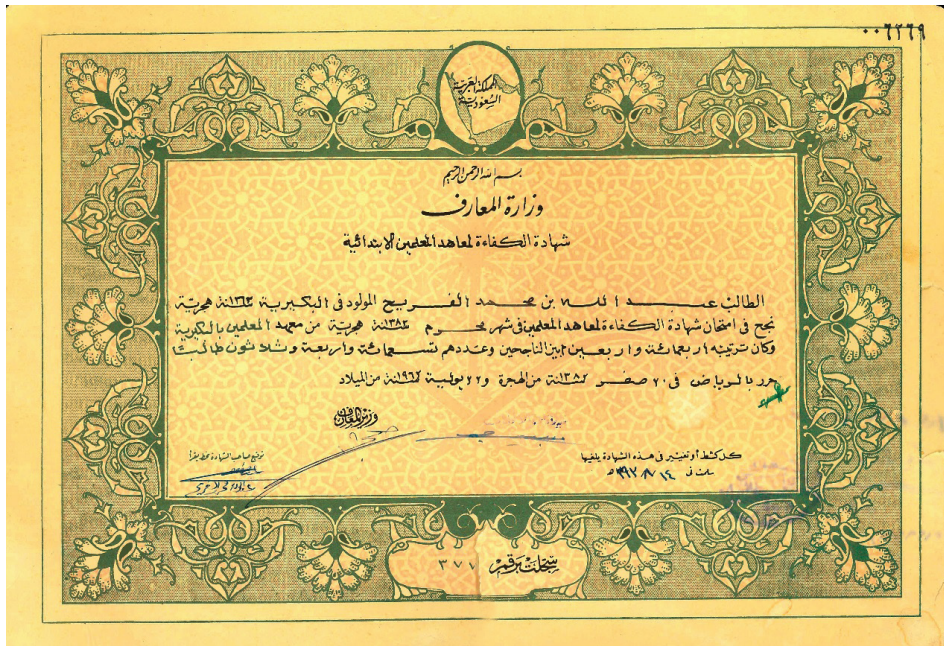 ٠٠٦٢٦٩
المملكة العربية
السعودية
بسم الله الرحمن الرحيم
وزارة المعارف
شهادة الكفاءة لمعاهد المعلمين الابتدائية
الطالب عبد الله بن محمد الفريح المولود في البكيرية سنة ١٣٦٣ هجرية
نجح في امتحان شهادة الكفاءة لمعاهد المعلمين في شهر محرم سنة ١٣٨٢ هجرية من معهد المعلمين بالبكيرية
وكان ترتيبه اربعمائة واربعين بين الناجحين وعددهم تسعمائة واربعة وثلاثون طالبا
حرر بالرياض في ٢٠ صفر سنة ١٣٨٢ من الهجرة و ٢٢ يولية سنة ١٩٦٢ من الميلاد
وزير المعارف
توقيع صاحب الشهادة بخط يقرأ
كل كشط أو تغيير في هذه الشهادة يلغيها
سجلت برقم ٣٧٧